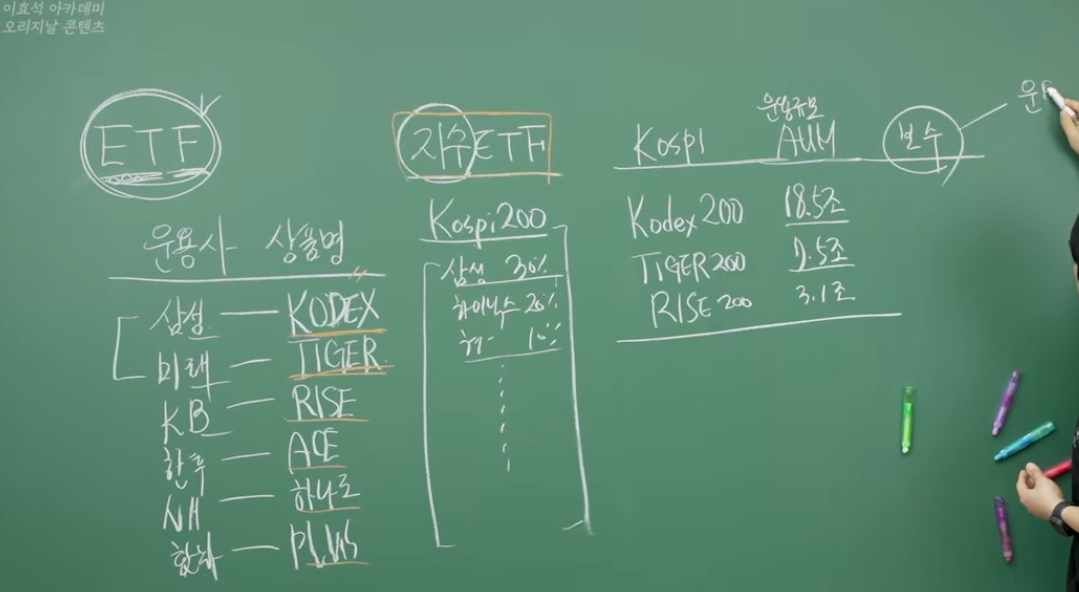 이효석 아카데미
오리지날 콘텐츠
ETF
운용사 상품명
삼성 — KODEX
미래 — TIGER
KB — RISE
한투 — ACE
NH — 하나로
한화 — PLUS
지수 ETF
Kospi200
삼성 30%
하이닉스 20%
10%
운용규모
Kospi AUM 보수
Kodex 200 18.5조
TIGER 200 7.5조
RISE 200 3.1조
운